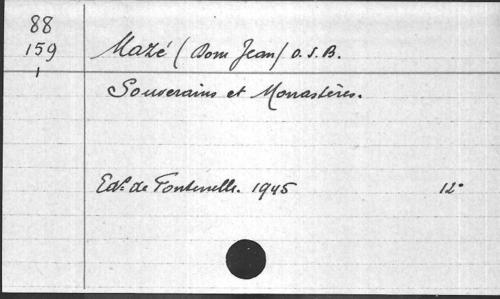 88
159 Mazé (Dom Jean) O.S.B.
1
Souverains et Monastères.
Edn de Fontenelle. 1945 12°